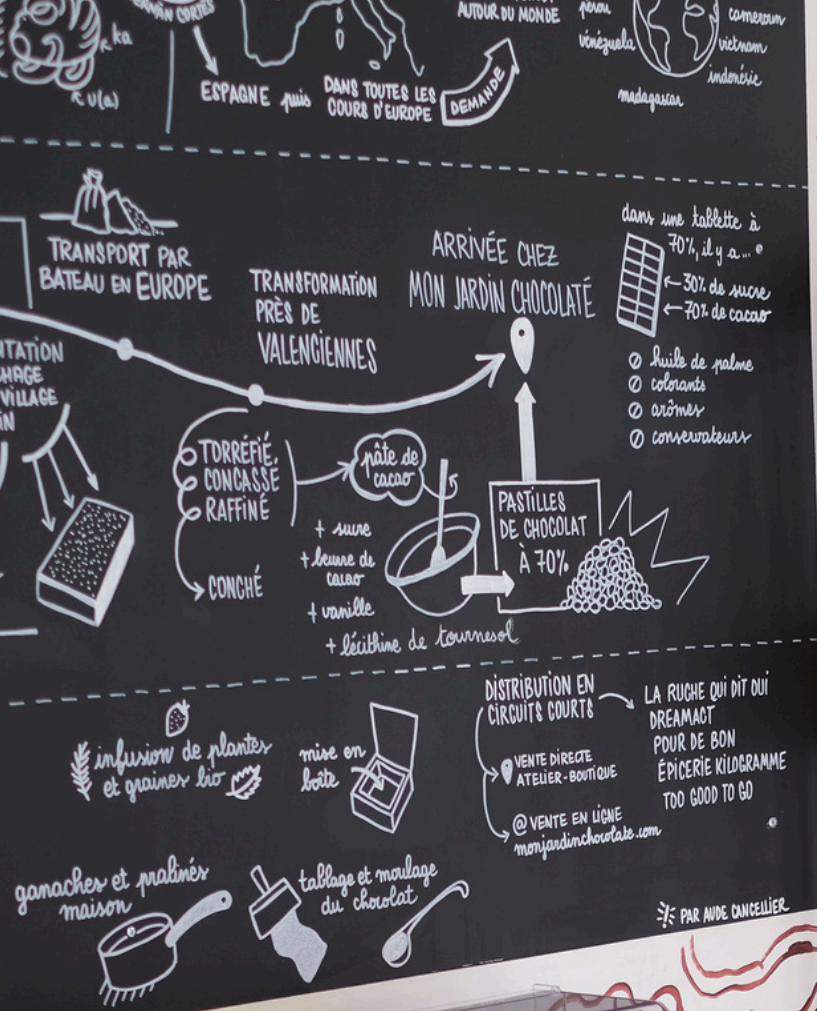 CORTÉS
ka
u(a)
ESPAGNE puis
DANS TOUTES LES
COURS D'EUROPE
DEMANDE
AUTOUR DU MONDE
pérou
vénézuela
madagascar
cameroun
vietnam
indonésie
TRANSPORT PAR
BATEAU EN EUROPE
TRANSFORMATION
PRÈS DE
VALENCIENNES
ARRIVÉE CHEZ
MON JARDIN CHOCOLATÉ
dans une tablette à
70%, il y a...
30% de sucre
70% de cacao
huile de palme
colorants
arômes
conservateurs
VILLAGE
TORRÉFIÉ,
CONCASSÉ
RAFFINÉ
CONCHÉ
pâte de
cacao
+ sucre
+ beurre de
cacao
+ vanille
+ lécithine de tournesol
PASTILLES
DE CHOCOLAT
À 70%
infusion de plantes
et graines bio
mise en
boîte
ganaches et pralinés
maison
tablage et moulage
du chocolat
DISTRIBUTION EN
CIRCUITS COURTS
VENTE DIRECTE
ATELIER-BOUTIQUE
@ VENTE EN LIGNE
monjardinchocolate.com
LA RUCHE QUI DIT OUI
DREAMACT
POUR DE BON
ÉPICERIE KILOGRAMME
TOO GOOD TO GO
PAR AUDE CANCELLIER